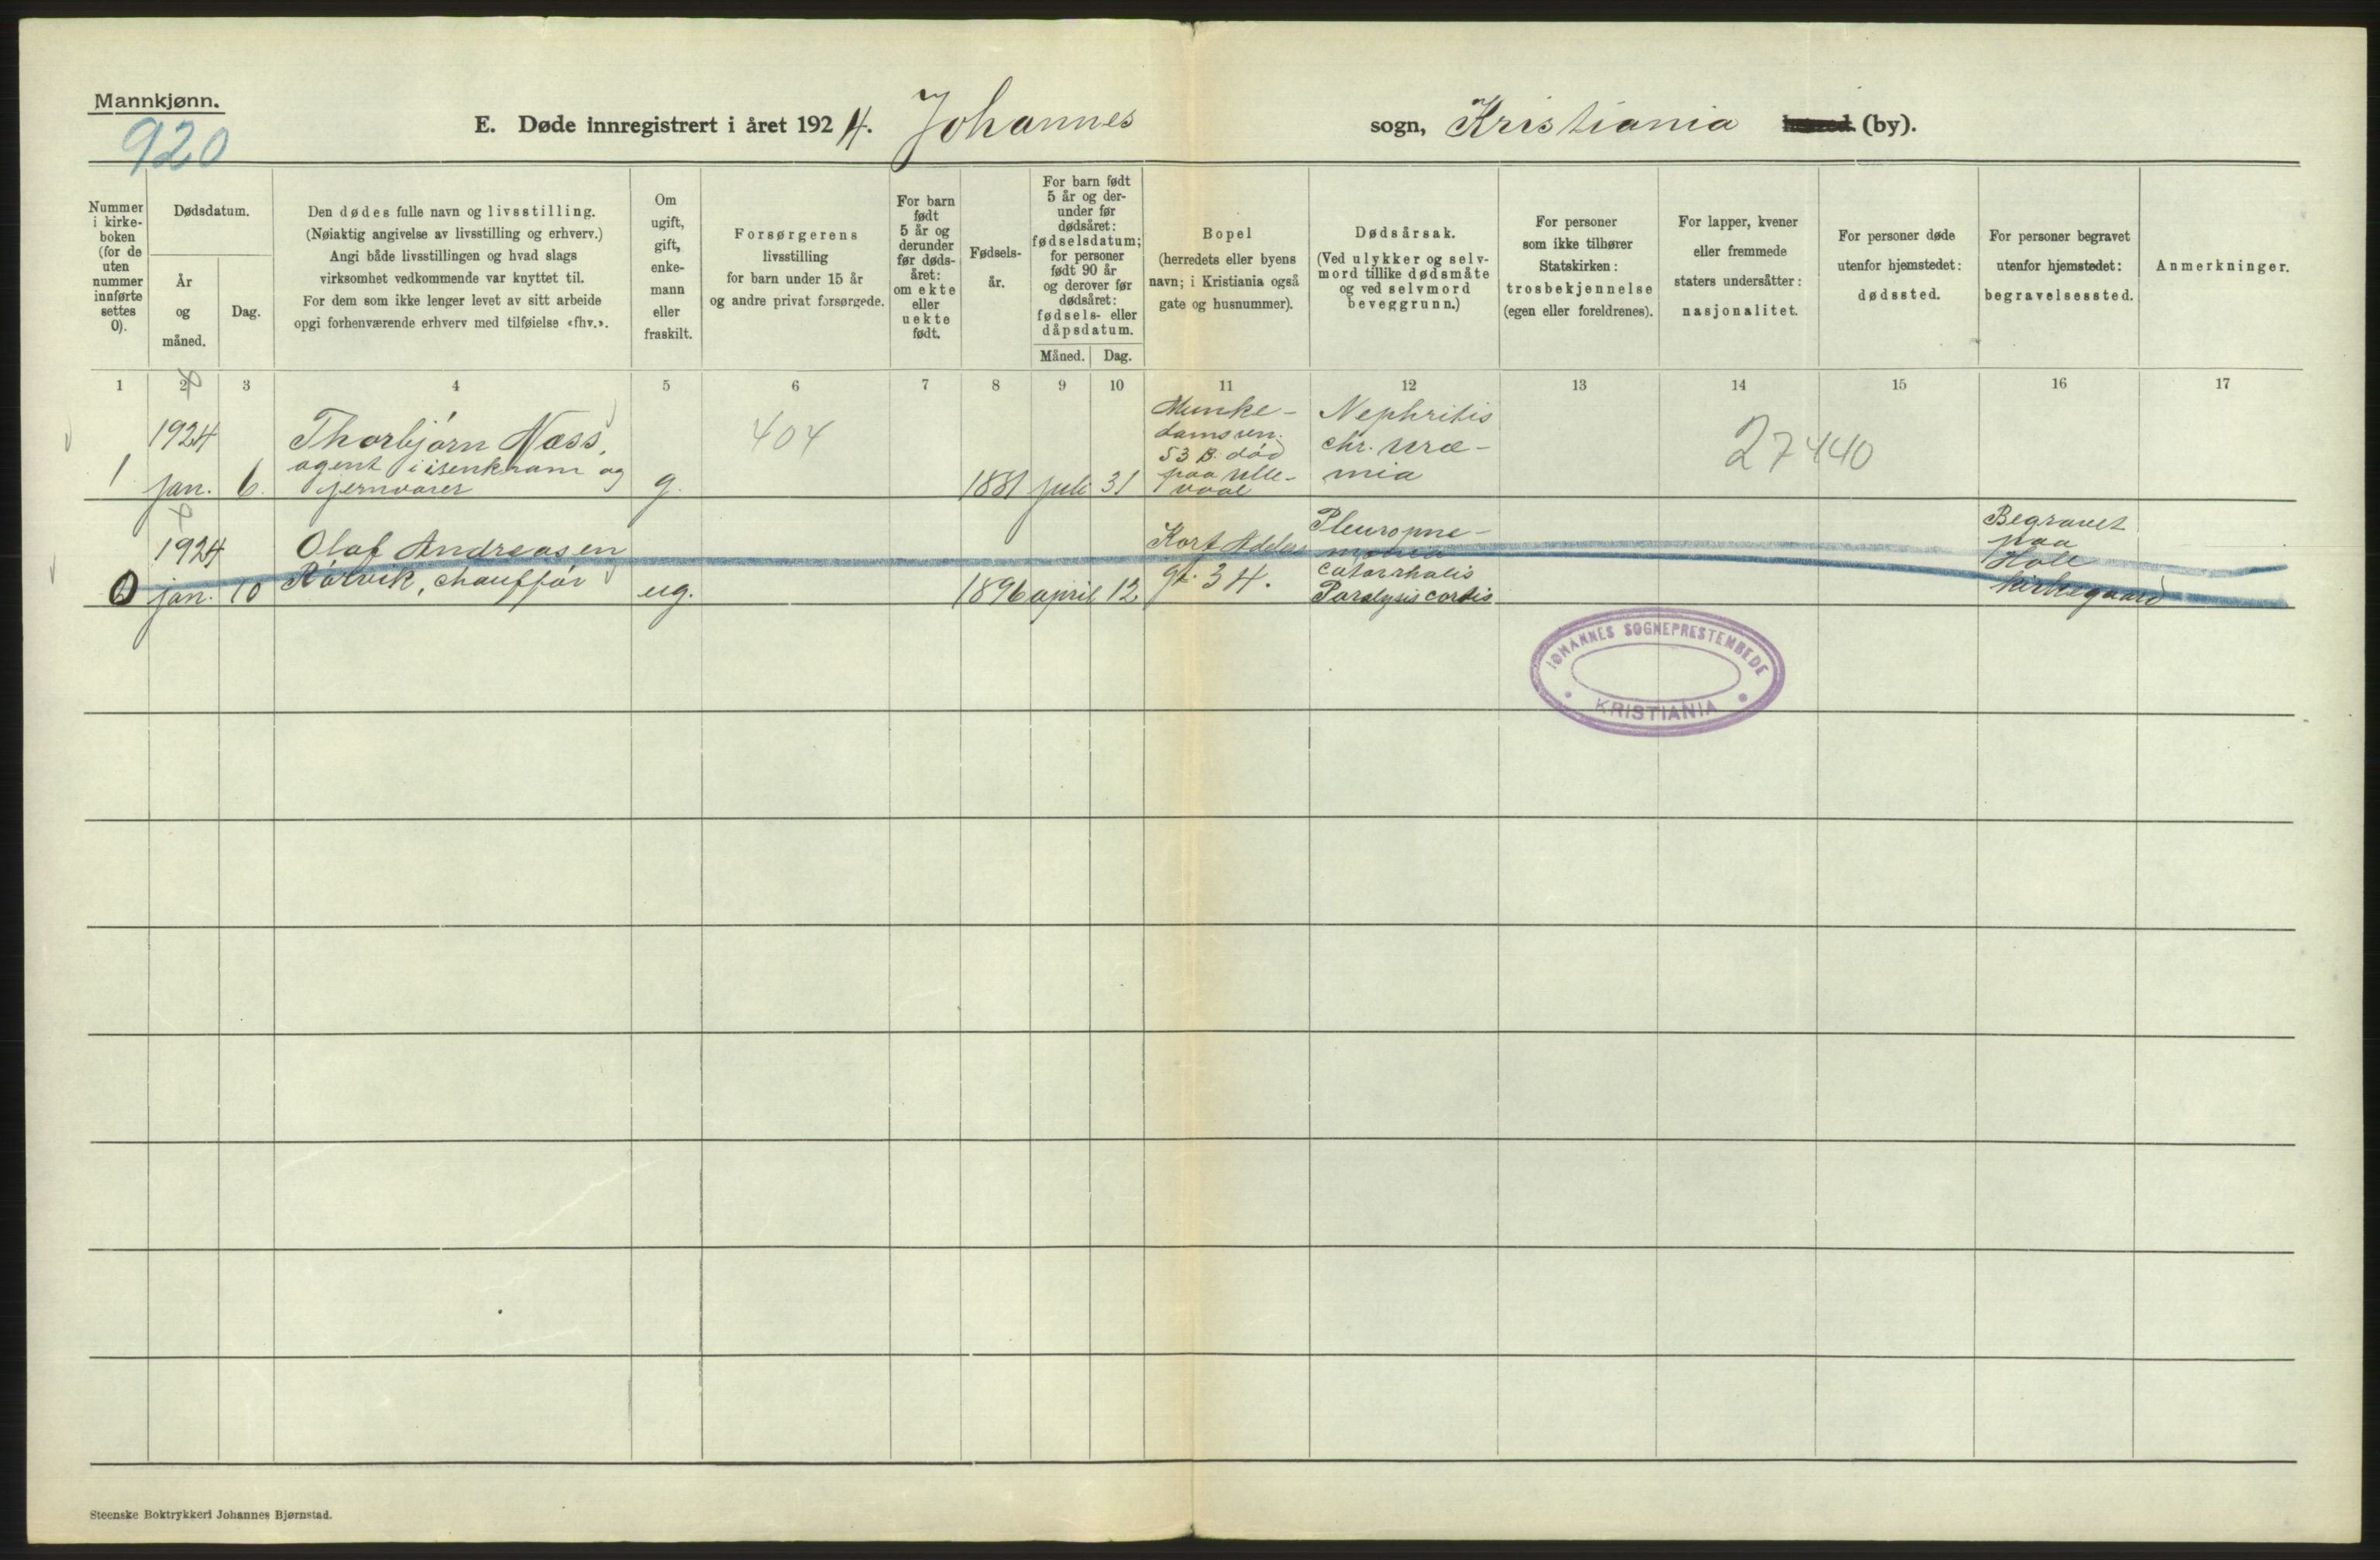 Mannkjønn.
920
E. Døde innregistrert i året 1924. Johannes sogn, Kristiania herred (by).
Nummer i kirke- boken (for de uten nummer innførte settes 0).
Dødsdatum.
År og måned.
Dag.
Den dødes fulle navn og livsstilling.
(Nøiaktig angivelse av livsstilling og erhverv.)
Angi både livsstillingen og hvad slags
virksomhet vedkommende var knyttet til.
For dem som ikke lenger levet av sitt arbeide
opgi forhenværende erhverv med tilføielse «fhv.».
Om ugift, gift, enke- mann eller fraskilt.
Forsørgerens
livsstilling
for barn under 15 år
og andre privat forsørgede.
For barn født 5 år og derunder før døds- året: om ekte eller uekte født.
Fødsels- år.
For barn født 5 år og der- under før dødsåret: fødselsdatum; for personer født 90 år og derover før dødsåret: fødsels- eller dåpsdatum.
Måned. Dag.
Bopel
(herredets eller byens
navn; i Kristiania også
gate og husnummer).
Dødsårsak.
(Ved ulykker og selv-
mord tillike dødsmåte
og ved selvmord
beveggrunn.)
For personer
som ikke tilhører
Statskirken:
trosbekjennelse
(egen eller foreldrenes).
For lapper, kvener
eller fremmede
staters undersåtter:
nasjonalitet.
For personer døde
utenfor hjemstedet:
dødssted.
For personer begravet
utenfor hjemstedet:
begravelsessted.
Anmerkninger.
1 2 3 4 5 6 7 8 9 10 11 12 13 14 15 16 17
1
1924
jan. 6.
Thorbjørn Næss,
agent i isenkram og
jernvarer
g.
404
1881 juli 31
Munke-
damsvn.
53 B. død
paa Ulle-
vaal
Nephritis
chr. Uræ-
mia
27440
0
1924
jan. 10
Olaf Andreasen
Rørvik, chauffør
ug.
1896 april 12
Kort Adelers
gt. 34.
Pleuropne-
monia
catarrhalis
Paralysis cordis
Begravet
paa
Hole
kirkegaard
JOHANNES SOGNEPRESTEMBEDE
KRISTIANIA
Steenske Boktrykkeri Johannes Bjørnstad.